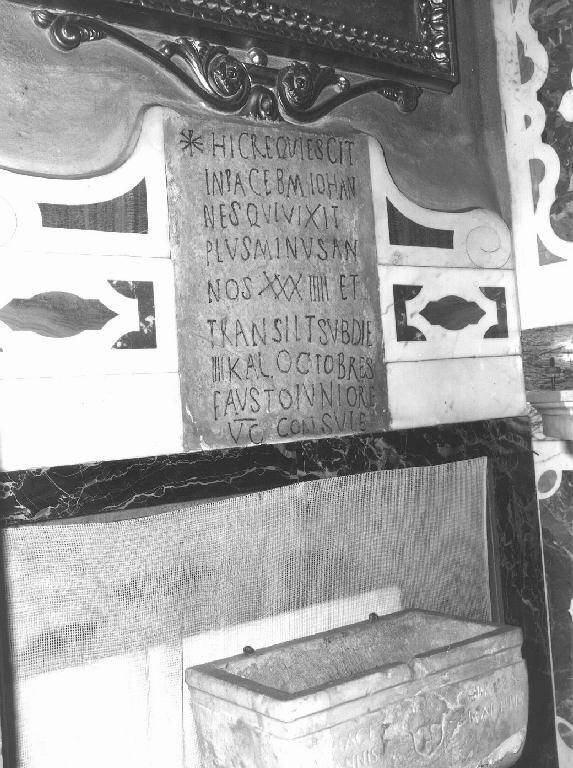 HIC REQUIESCIT
IN PACE BM IOHAN
NES QUI VIXIT
PLUS MINUS AN
NOS XXXIIII ET
TRANSILT SVB DIE
IIII KAL OCTOBRES
FAVSTO IVNIORE
VC CONSVLE